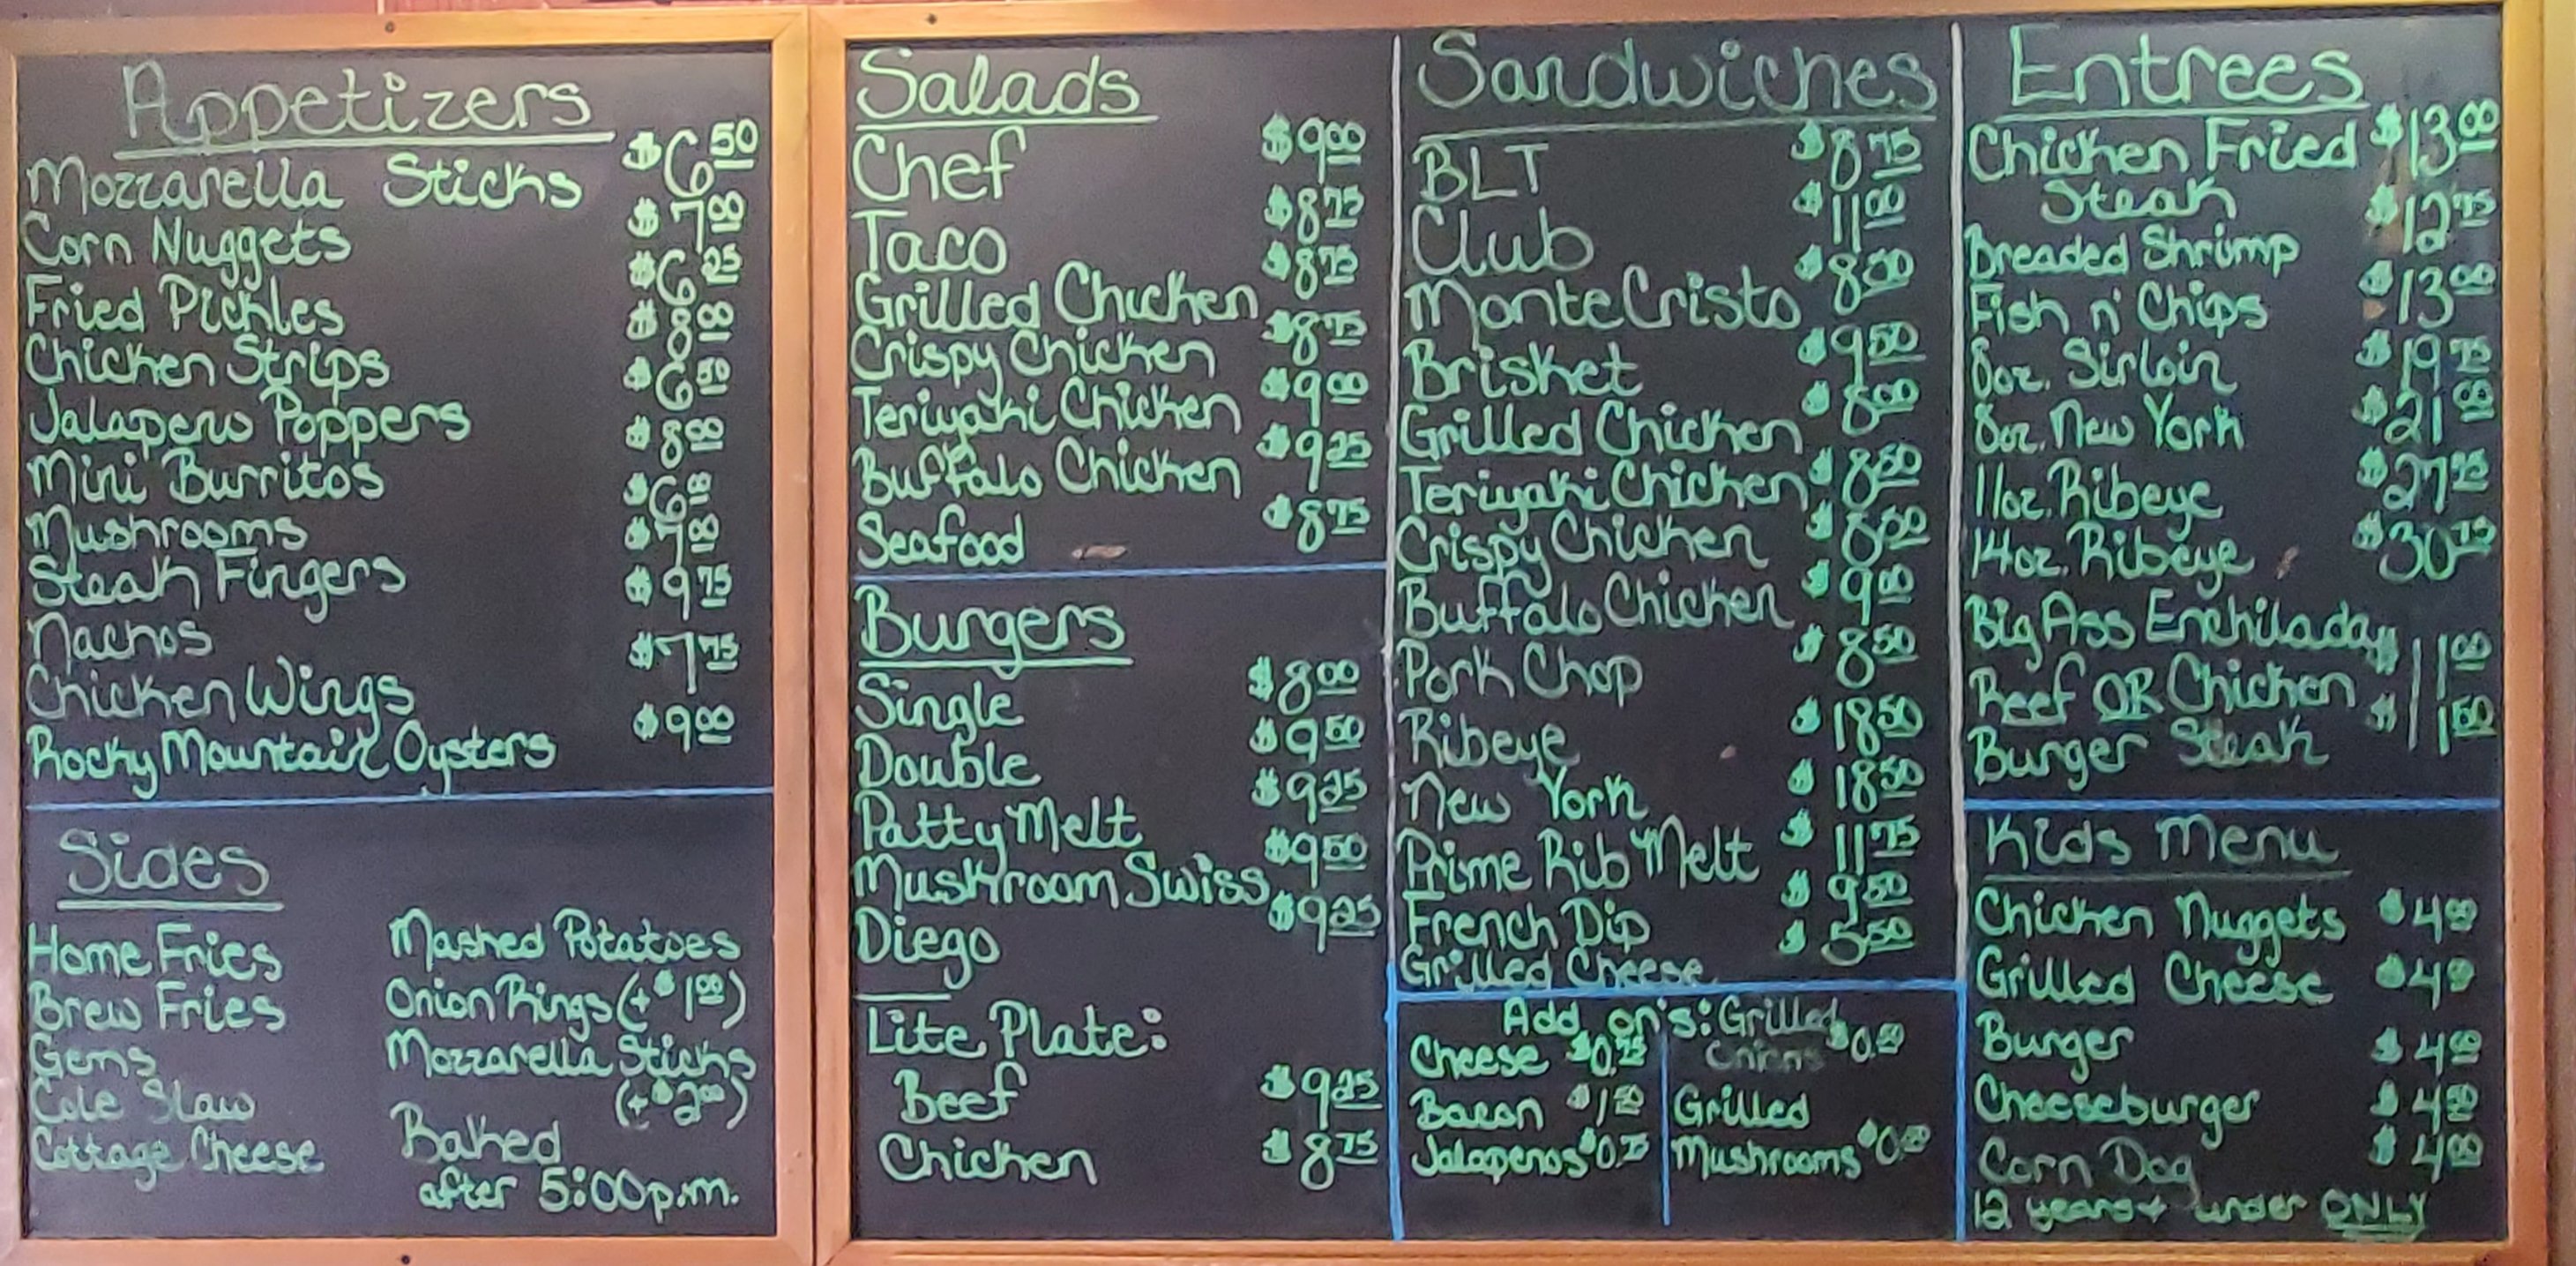 Appetizers
Mozzarella Sticks $6.50
Corn Nuggets $7.00
Fried Pickles $6.25
Chicken Strips $8.00
Jalapeno Poppers $6.50
Mini Burritos $8.00
Mushrooms
Steak Fingers
Nachos $9.75
Chicken Wings $7.75
Rocky Mountain Oysters $9.00
Sides
Home Fries
Brew Fries
Gems
Cole Slaw
Cottage Cheese
Mashed Potatoes
Onion Rings (+$1.00)
Mozzarella Sticks
(+$2.00)
Baked
after 5:00p.m.
Salads
Chef $9.00
Taco $8.75
Grilled Chicken $8.75
Crispy Chicken $8.75
Teriyaki Chicken $9.00
Buffalo Chicken $9.25
Seafood $8.75
Burgers
Single $8.00
Double $9.50
Patty Melt $9.25
Mushroom Swiss $9.50
Diego $9.25
Lite Plate:
Beef $9.25
Chicken $8.75
Sandwiches
BLT $8.75
Club $11.00
Monte Cristo
Brisket $9.50
Grilled Chicken $8.00
Teriyaki Chicken $8.50
Crispy Chicken $8.00
Buffalo Chicken $9.00
Pork Chop $8.50
Ribeye $18.50
New York $18.50
Prime Rib Melt $11.75
French Dip $9.50
Grilled Cheese $5.50
Add on's:
Cheese $0.75
Bacon
Jalapenos $0.75
Grilled
Onions
Grilled
Mushrooms
Entrees
Chicken Fried $13.00
Steak
Breaded Shrimp $12.75
Fish n' Chips $13.00
8oz. Sirloin $19.75
8oz. New York $21.00
11oz. Ribeye
14oz. Ribeye $30.75
Big Ass Enchilada $11.00
Beef OR Chicken
Burger Steak $11.50
Kids Menu
Chicken Nuggets $4.00
Grilled Cheese
Burger $4.00
Cheeseburger $4.50
Corn Dog $4.00
12 years + under ONLY